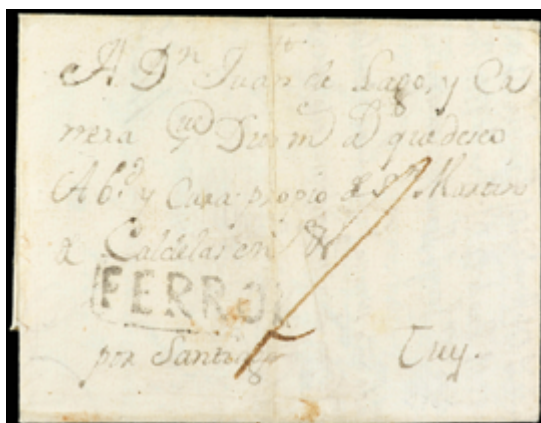 A Dn Juan de Lago, y Ca
mera que Dios m as que deseo
Abd y Cura propio de Sn Martin
de Caldelas en
FERROL
por Santiago Tuy.